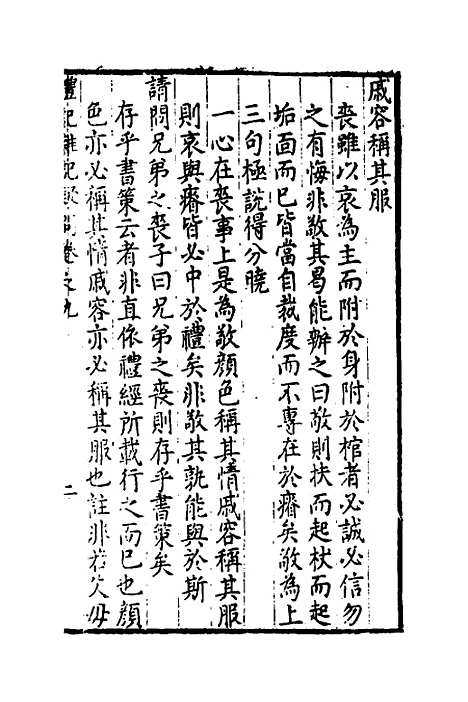 戚容稱其服
喪雖以哀為主而附於身附於棺者必誠必信勿
之有悔非敬其曷能辦之曰敬則扶而起杖而起
垢面而已皆當自裁度而不專在於瘠矣敬為上
三句極說得分曉
一心在喪事上是為敬顏色稱其情戚容稱其服
則哀與瘠皆必中於禮矣非敬其孰能與於斯
請問兄弟之喪子曰兄弟之喪則存乎書策矣
存乎書策云者非直依禮經所載行之而已也顏
色亦必稱其情戚容亦必稱其服也註非若父母
禮記 卷之九
二